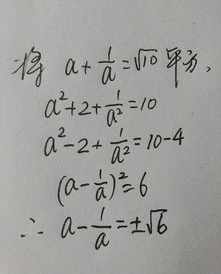 将 a + 1/a = √10 平方,
a² + 2 + 1/a² = 10
a² - 2 + 1/a² = 10 - 4
(a - 1/a)² = 6
∴ a - 1/a = ±√6